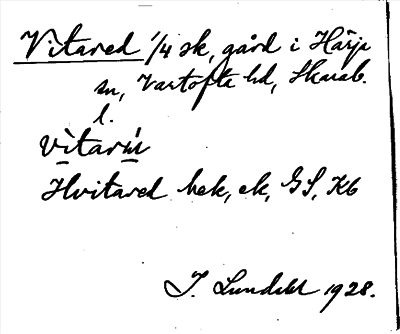 Vitared 1/4 sk, gård i Härja
sn, Vartofta hd, Skarab.
l.
vìtarı̇́
Hvitared hek, ek, GS, Kb
J. Lundahl 1928.